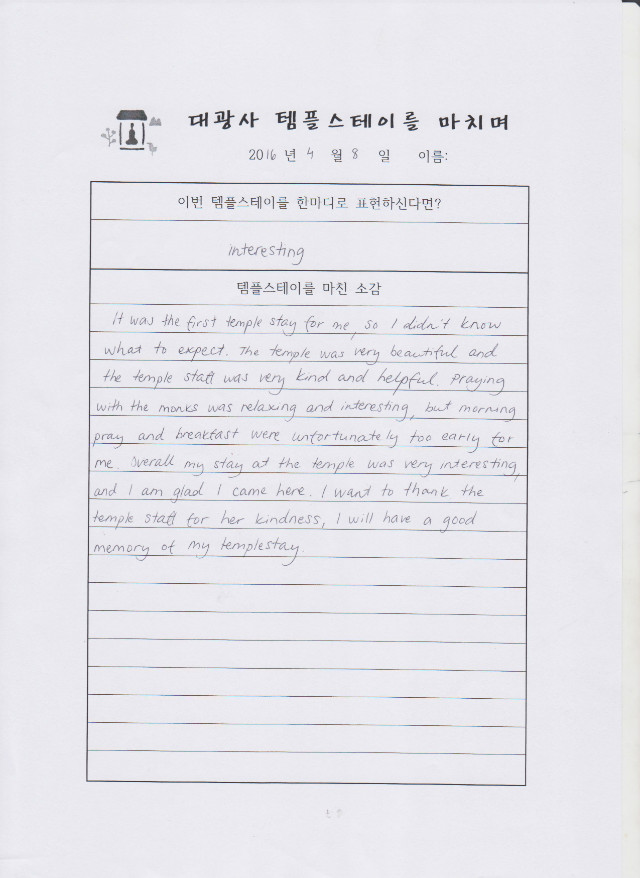 대광사 템플스테이를 마치며
2016 년 4 월 8 일 이름:
이번 템플스테이를 한마디로 표현하신다면?
interesting
템플스테이를 마친 소감
It was the first temple stay for me, so I didn't know
what to expect. The temple was very beautiful and
the temple staff was very kind and helpful. Praying
with the monks was relaxing and interesting, but morning
pray and breakfast were unfortunately too early for
me. Overall my stay at the temple was very interesting,
and I am glad I came here. I want to thank the
temple staff for her kindness, I will have a good
memory of my templestay.